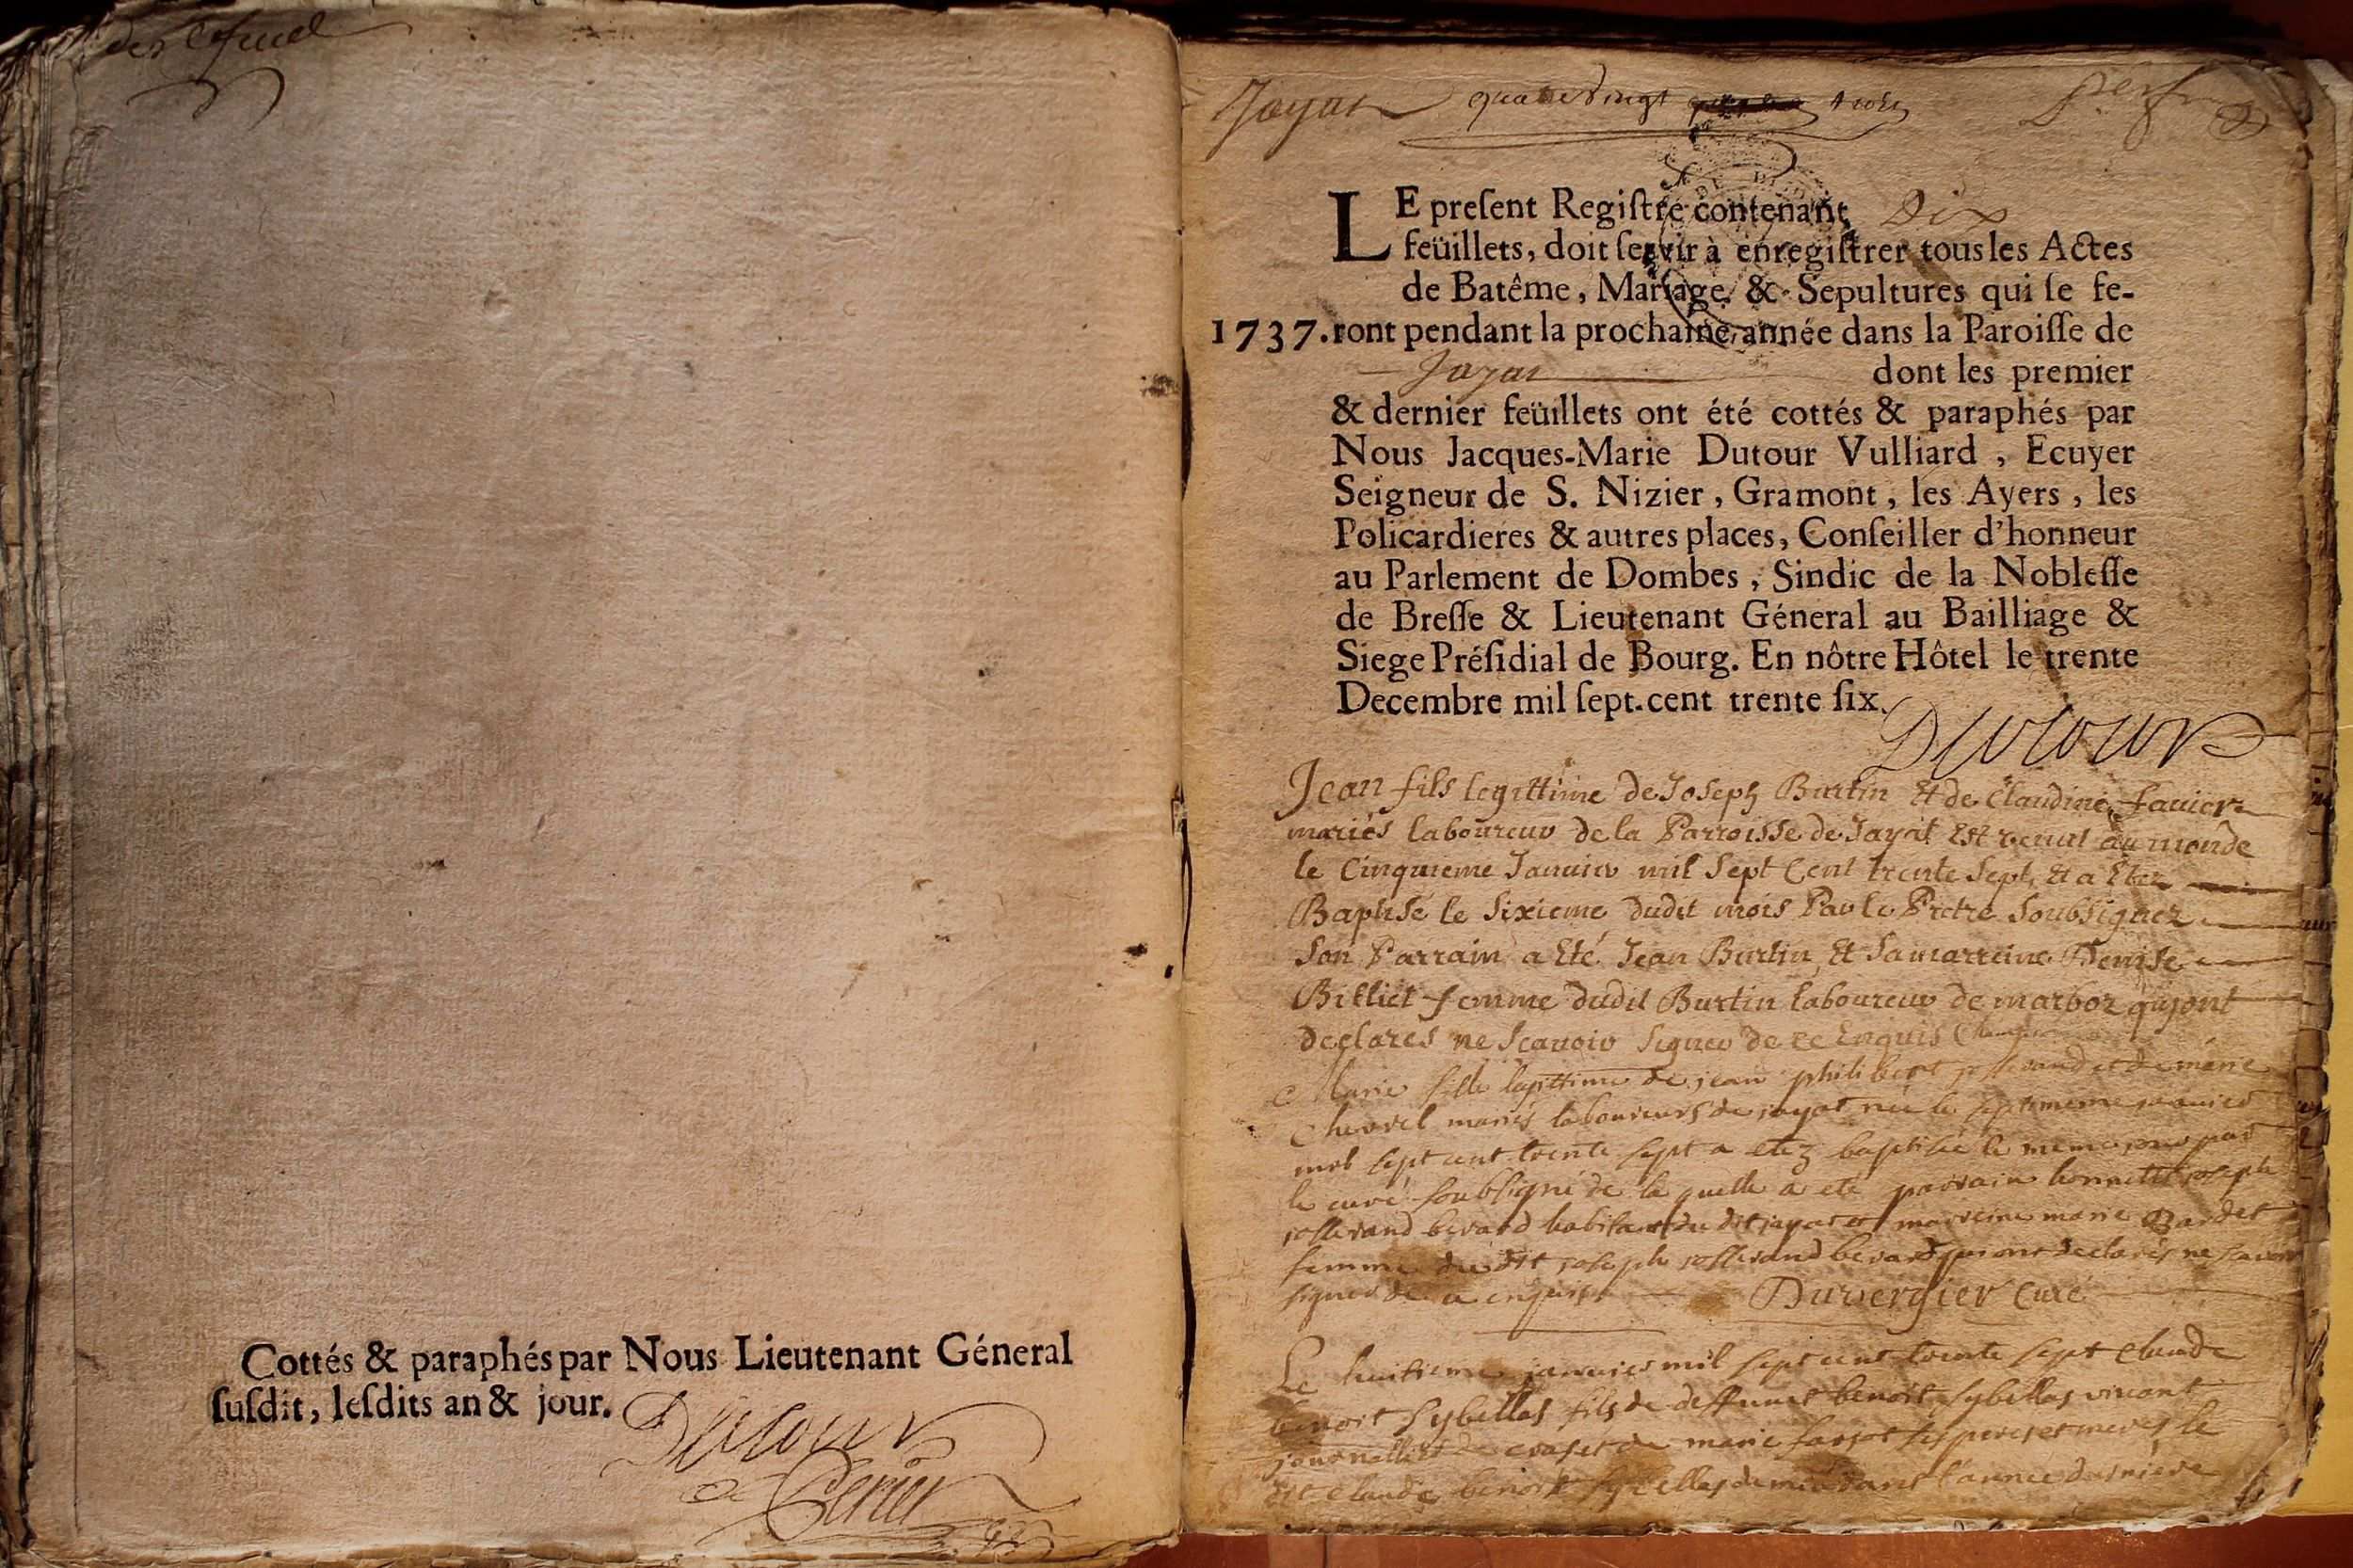 Cottés & paraphés par Nous Lieutenant Géneral
ſuſdit, leſdits an & jour.
Dutour
Jayat quatre vingt trois
LE preſent Regiſtre contenant Dix
feüillets, doit ſervir à enregiſtrer tous les Actes
de Batême, Mariage & Sepultures qui ſe fe-
1737. ront pendant la prochaine année dans la Paroiſſe de
Jayat dont les premier
& dernier feüillets ont été cottés & paraphés par
Nous Jacques-Marie Dutour Vulliard, Ecuyer
Seigneur de S. Nizier, Gramont, les Ayers, les
Policardieres & autres places, Conſeiller d'honneur
au Parlement de Dombes, Sindic de la Nobleſſe
de Breſſe & Lieutenant Géneral au Bailliage &
Siege Préſidial de Bourg. En nôtre Hôtel le trente
Decembre mil ſept-cent trente ſix.
Dutour
Jean fils legittime de Joseph Burtin Et de Claudine favier
mariés laboureur de la Parroisse de Jayat Est venut au monde
le Cinquieme Janvier mil Sept Cent trente Sept, Et a Etez
Baptisé le Sixieme dudit mois Par le Pretre Soubsignez
Son Parrain a Eté Jean Burtin Et Sa marreine Denise
Billiet femme dudit Burtin laboureur de marboz qui ont
declares ne Scavoir Signer de ce Enquis
Marie fille legittime de jean philibert josserand et de marie
Chevrel mariés laboureurs de jayat née le septiememe janvier
mil sept cent trente sept a etez baptisée le meme jour par
le curé soubsigné de la quelle a eté parrain honnette joseph
josserand berard habitant du dit jayat et marreine marie Bardet
femme du dit joseph josserand berard qui ont declarés ne scavoir
signer de ce enquis Duvergier Curé
Le huitieme janvier mil sept cent trente sept Claude
benoit Sybellas fils de deffunct benoit Sybellas vivant
de et de marie farjot ses peres et meres le
dit Claude benoit Sybellas dans l'année derniere